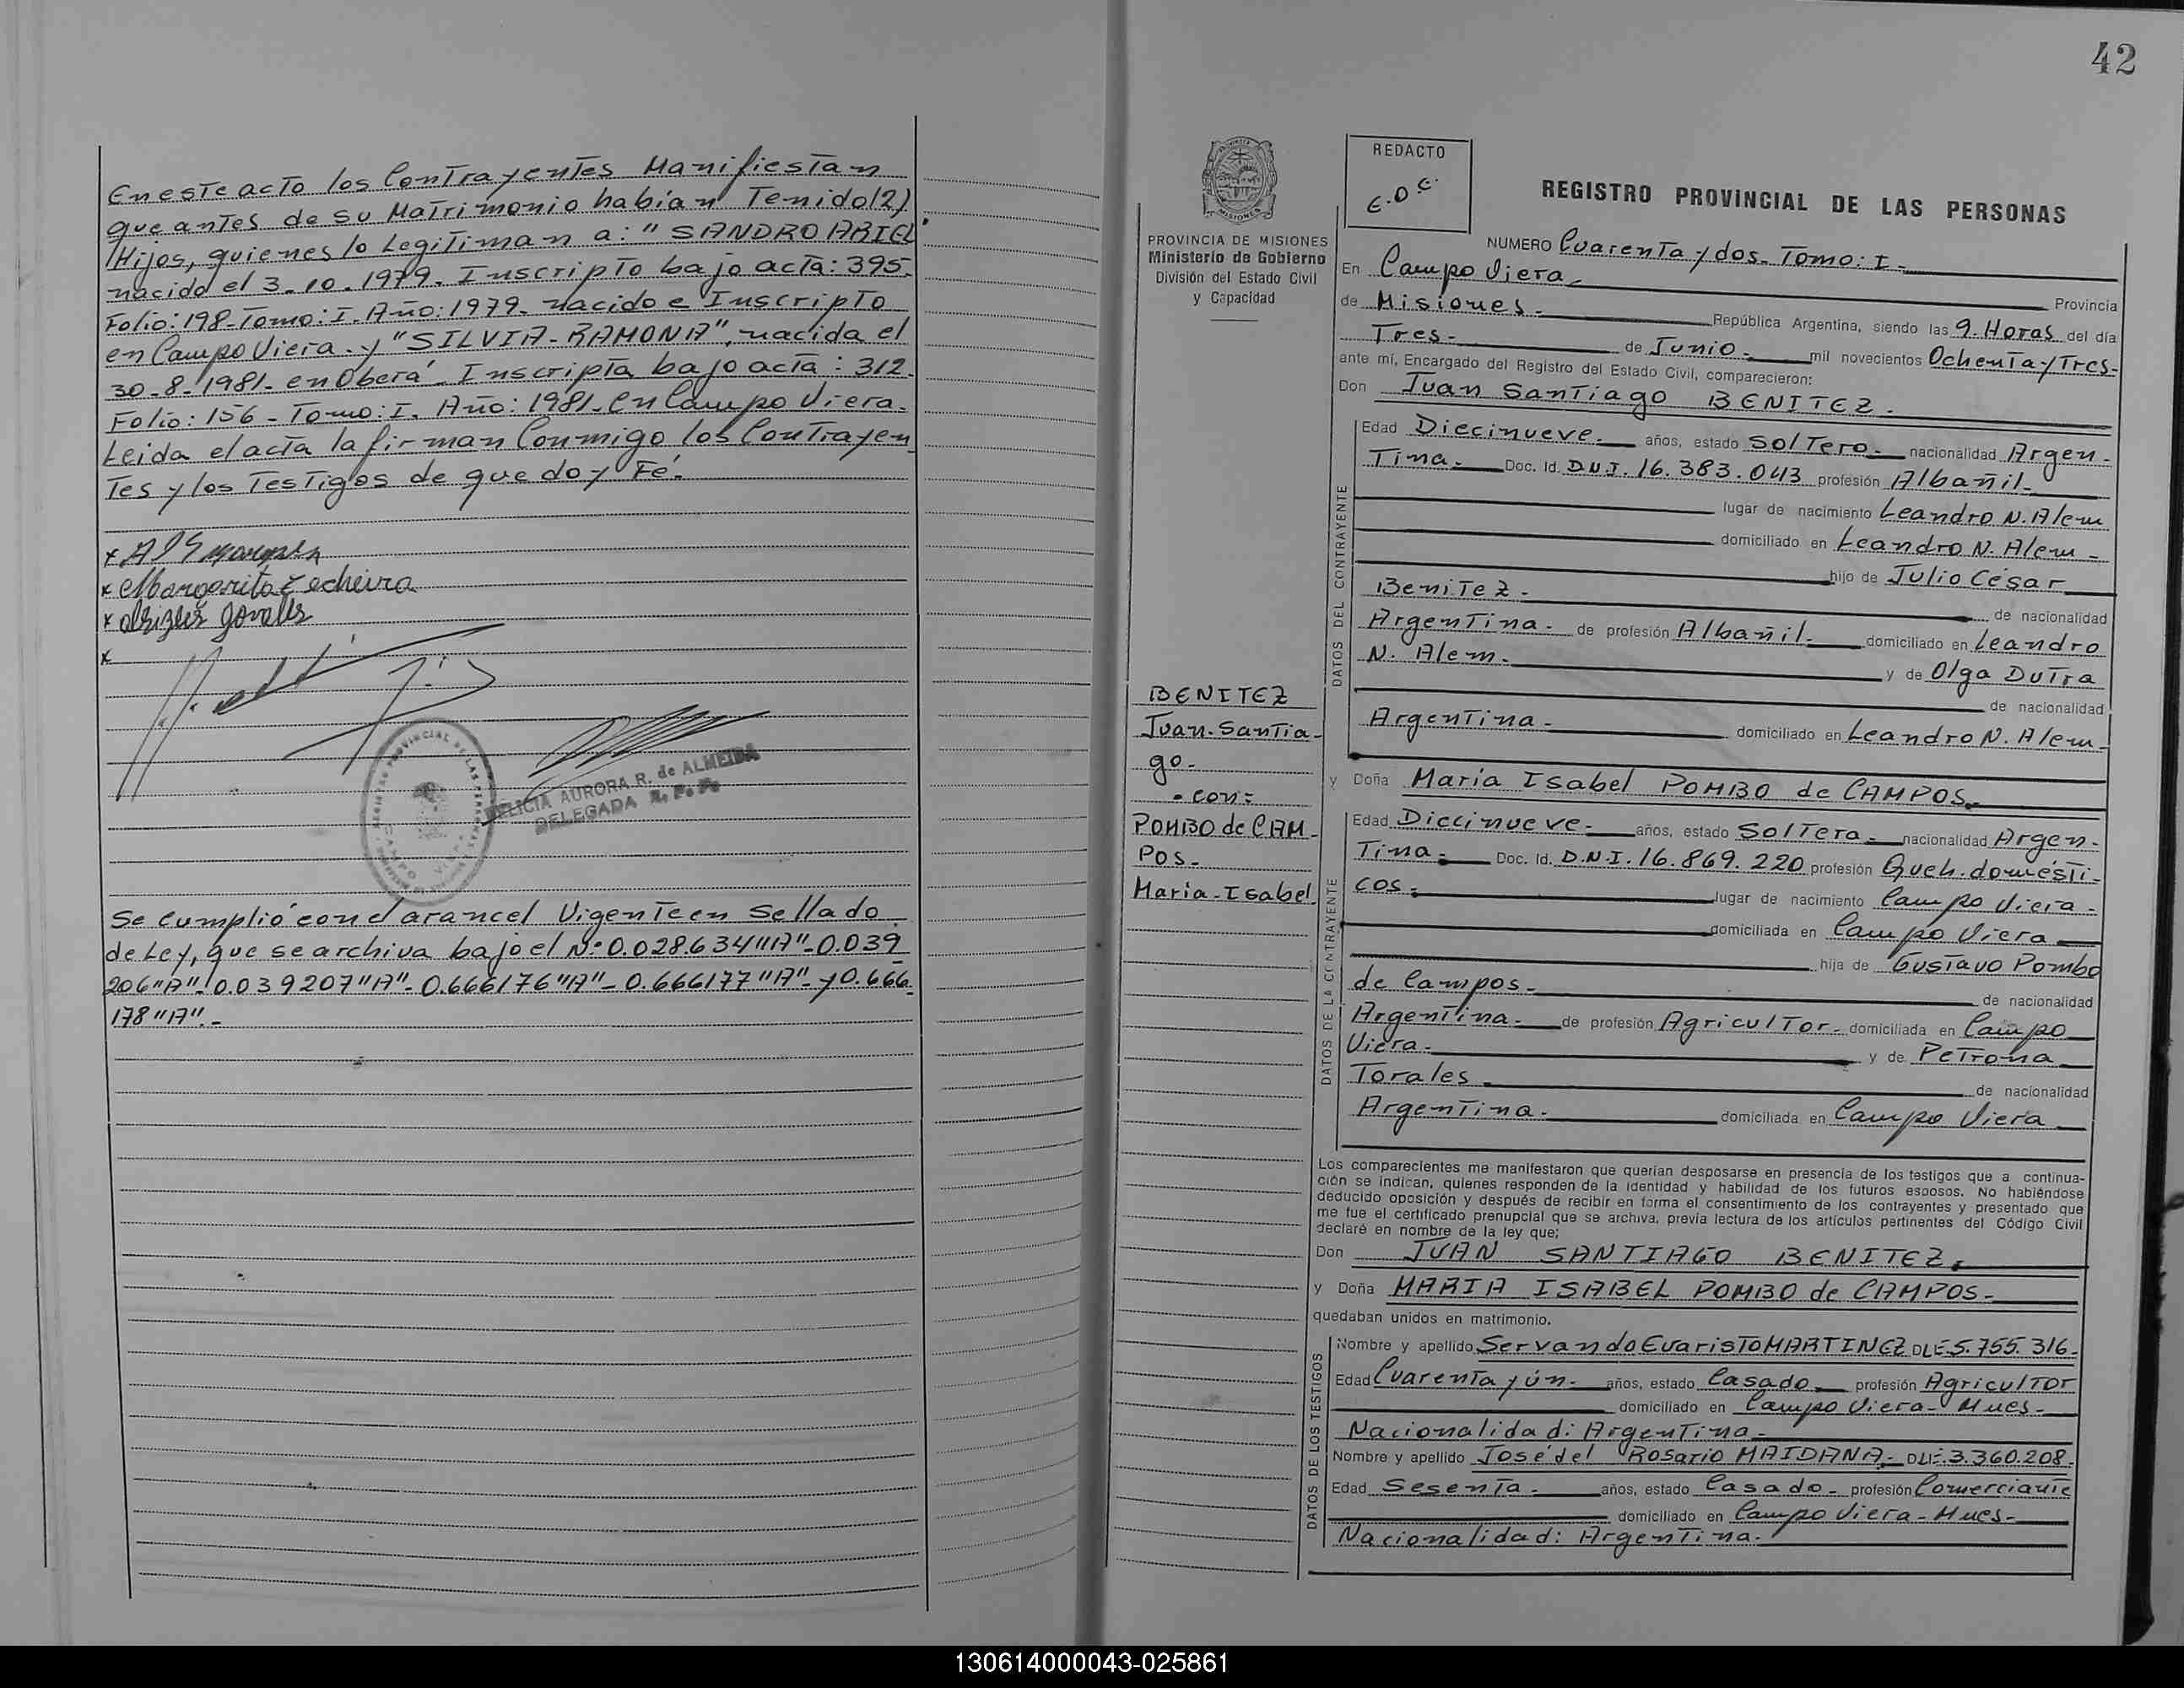 En este acto los Contrayentes Manifiestan
que antes de su Matrimonio habían Tenido (2)
Hijos, quienes lo Legitiman a: "SANDRO ARIEL"
nacido el 3-10-1979. Inscripto bajo acta: 395.
Folio: 198-Tomo: I. Año: 1979. nacido e Inscripto
en Campo Viera. y "SILVIA-RAMONA", nacida el
30-8-1981. en Oberá. Inscripta bajo acta: 312.
Folio: 156-Tomo: I. Año: 1981. en Campo Viera.
Leida el acta la firman Conmigo los Contrayen
Tes y los Testigos de que doy Fé.
x
x Margarita
x
x
REGISTRO PROVINCIAL DE LAS PERSONAS
CAMPO VIERA
DELICIA AURORA R. de ALMEIDA
DELEGADA R. P. P.
Se Cumplió con el arancel Vigente en Sellado
de Ley, que se archiva bajo el Nº 0.028.634 "A"-0.039
206 "A"-0.039207 "A"-0.666176 "A"-0.666177 "A"-y 0.666
178 "A".-
42
REDACTO
PROVINCIA DE MISIONES
Ministerio de Gobierno
División del Estado Civil
y Capacidad
BENITEZ
Juan-Santia-
go-
-con:
POMBO de CAM-
POS-
Maria-Isabel
REGISTRO PROVINCIAL DE LAS PERSONAS
NUMERO Cuarenta y dos- Tomo: I-
En Campo Viera- Provincia
de Misiones- República Argentina, siendo las 9. Horas del día
Tres- de Junio- mil novecientos Ochenta y Tres-
ante mí, Encargado del Registro del Estado Civil, comparecieron:
Don Juan Santiago BENITEZ.
DATOS DEL CONTRAYENTE
Edad Diecinueve- años, estado Soltero- nacionalidad Argen-
Tina- Doc. Id. D.N.I. 16.383.043 profesión Albañil-
lugar de nacimiento Leandro N. Alem
domiciliado en Leandro N. Alem-
hijo de Julio César
Benitez- de nacionalidad
Argentina- de profesión Albañil- domiciliado en Leandro
N. Alem- y de Olga Dutra
de nacionalidad
Argentina- domiciliado en Leandro N. Alem-
y Doña Maria Isabel POMBO de CAMPOS-
DATOS DE LA CONTRAYENTE
Edad Diecinueve- años, estado Soltera- nacionalidad Argen-
Tina- Doc. Id. D.N.I. 16.869.220 profesión Queh. domésti-
cos- lugar de nacimiento Campo Viera-
domiciliada en Campo Viera
hija de Gustavo Pombo
de Campos- de nacionalidad
Argentina- de profesión Agricultor- domiciliada en Campo
Viera- y de Petrona
Torales- de nacionalidad
Argentina- domiciliada en Campo Viera
Los comparecientes me manifestaron que querían desposarse en presencia de los testigos que a continua-
ción se indican, quienes responden de la identidad y habilidad de los futuros esposos. No habiéndose
deducido oposición y después de recibir en forma el consentimiento de los contrayentes y presentado que
me fue el certificado prenupcial que se archiva, previa lectura de los artículos pertinentes del Código Civil
declaré en nombre de la ley que;
Don JUAN SANTIAGO BENITEZ.
y Doña MARIA ISABEL POMBO de CAMPOS-
quedaban unidos en matrimonio.
DATOS DE LOS TESTIGOS
Nombre y apellido Servando Evaristo MARTINEZ DLE 5.755.316-
Edad Cuarenta y ún- años, estado Casado- profesión Agricultor
domiciliado en Campo Viera- Mnes-
Nacionalidad: Argentina-
Nombre y apellido José del Rosario MAIDANA- DLE. 3.360.208-
Edad Sesenta- años, estado Casado- profesión Comerciante
domiciliado en Campo Viera- Mnes-
Nacionalidad: Argentina.
130614000043-025861